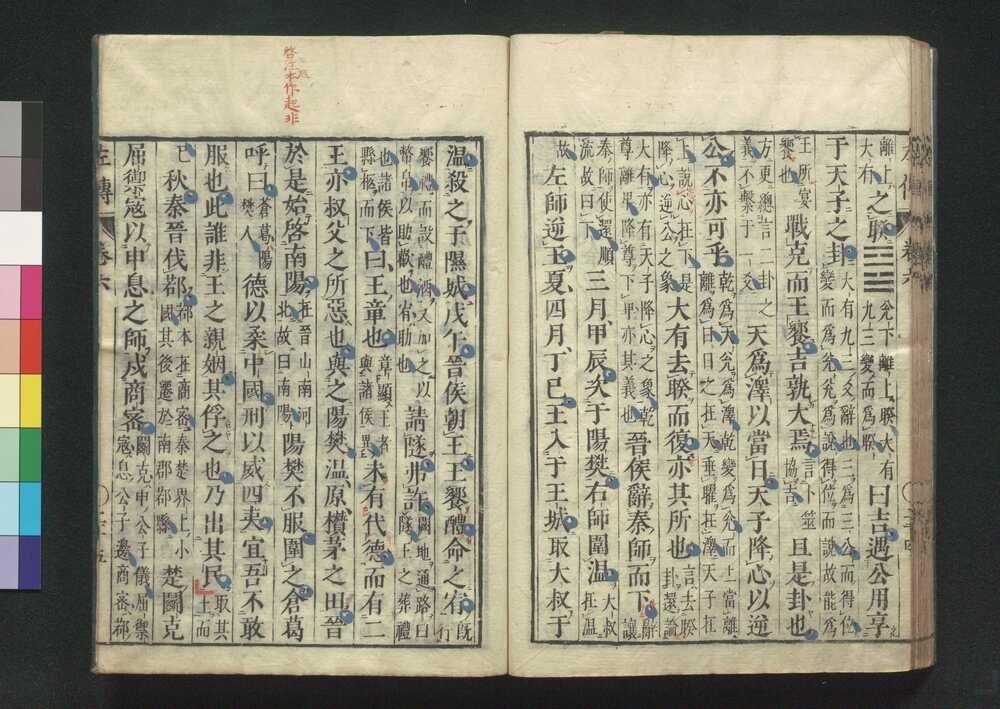 離上大有之睽䷥兌下離上睽大有九三變而爲睽曰吉遇公用享
于天子之卦大有九三爻辭也三爲三公而得位變而爲兌兌爲說得位而說故能爲
王所宴饗也戰克而王饗吉孰大焉言卜筮協吉且是卦也
方更總言二卦之義不繫于一爻天爲澤以當日天子降心以逆
公不亦可乎乾爲天兌爲澤乾變爲兌而上當離離爲日日之在天垂曜在澤天子在
上說心在下是降心逆公之象大有去睽而復亦其所也言去睽卦還論
大有亦有天子降心之象乾尊離卑降尊下卑亦其義也晉侯辭秦師而下辭讓
秦師使還順流故曰下三月甲辰次于陽樊右師圍溫大叔在溫
故左師逆王夏四月丁巳王入于王城取大叔于
溫殺之于隰城戊午晉侯朝王王饗醴命之宥既行
饗禮而設醴酒又加之以幣帛以助歡也宥助也請隧弗許闕地通路曰隧王之葬禮
也諸侯皆縣柩而下曰王章也章顯王者與諸侯異未有代德而有二
王亦叔父之所惡也與之陽樊溫原欑茅之田晉
於是始啓南陽在晉山南河北故曰南陽陽樊不服圍之倉葛
呼曰蒼葛陽樊人德以柔中國刑以威四夷宜吾不敢
服也此誰非王之親姻其俘之也乃出其民取其土而
已秋秦晉伐鄀鄀本在商密秦楚界上小國其後遷於南郡鄀縣楚鬭克
屈禦寇以申息之師戍商密鬭克申公子儀屈禦寇息公子邊商密鄀
左傳 卷六 二十五
啓汪本作起非